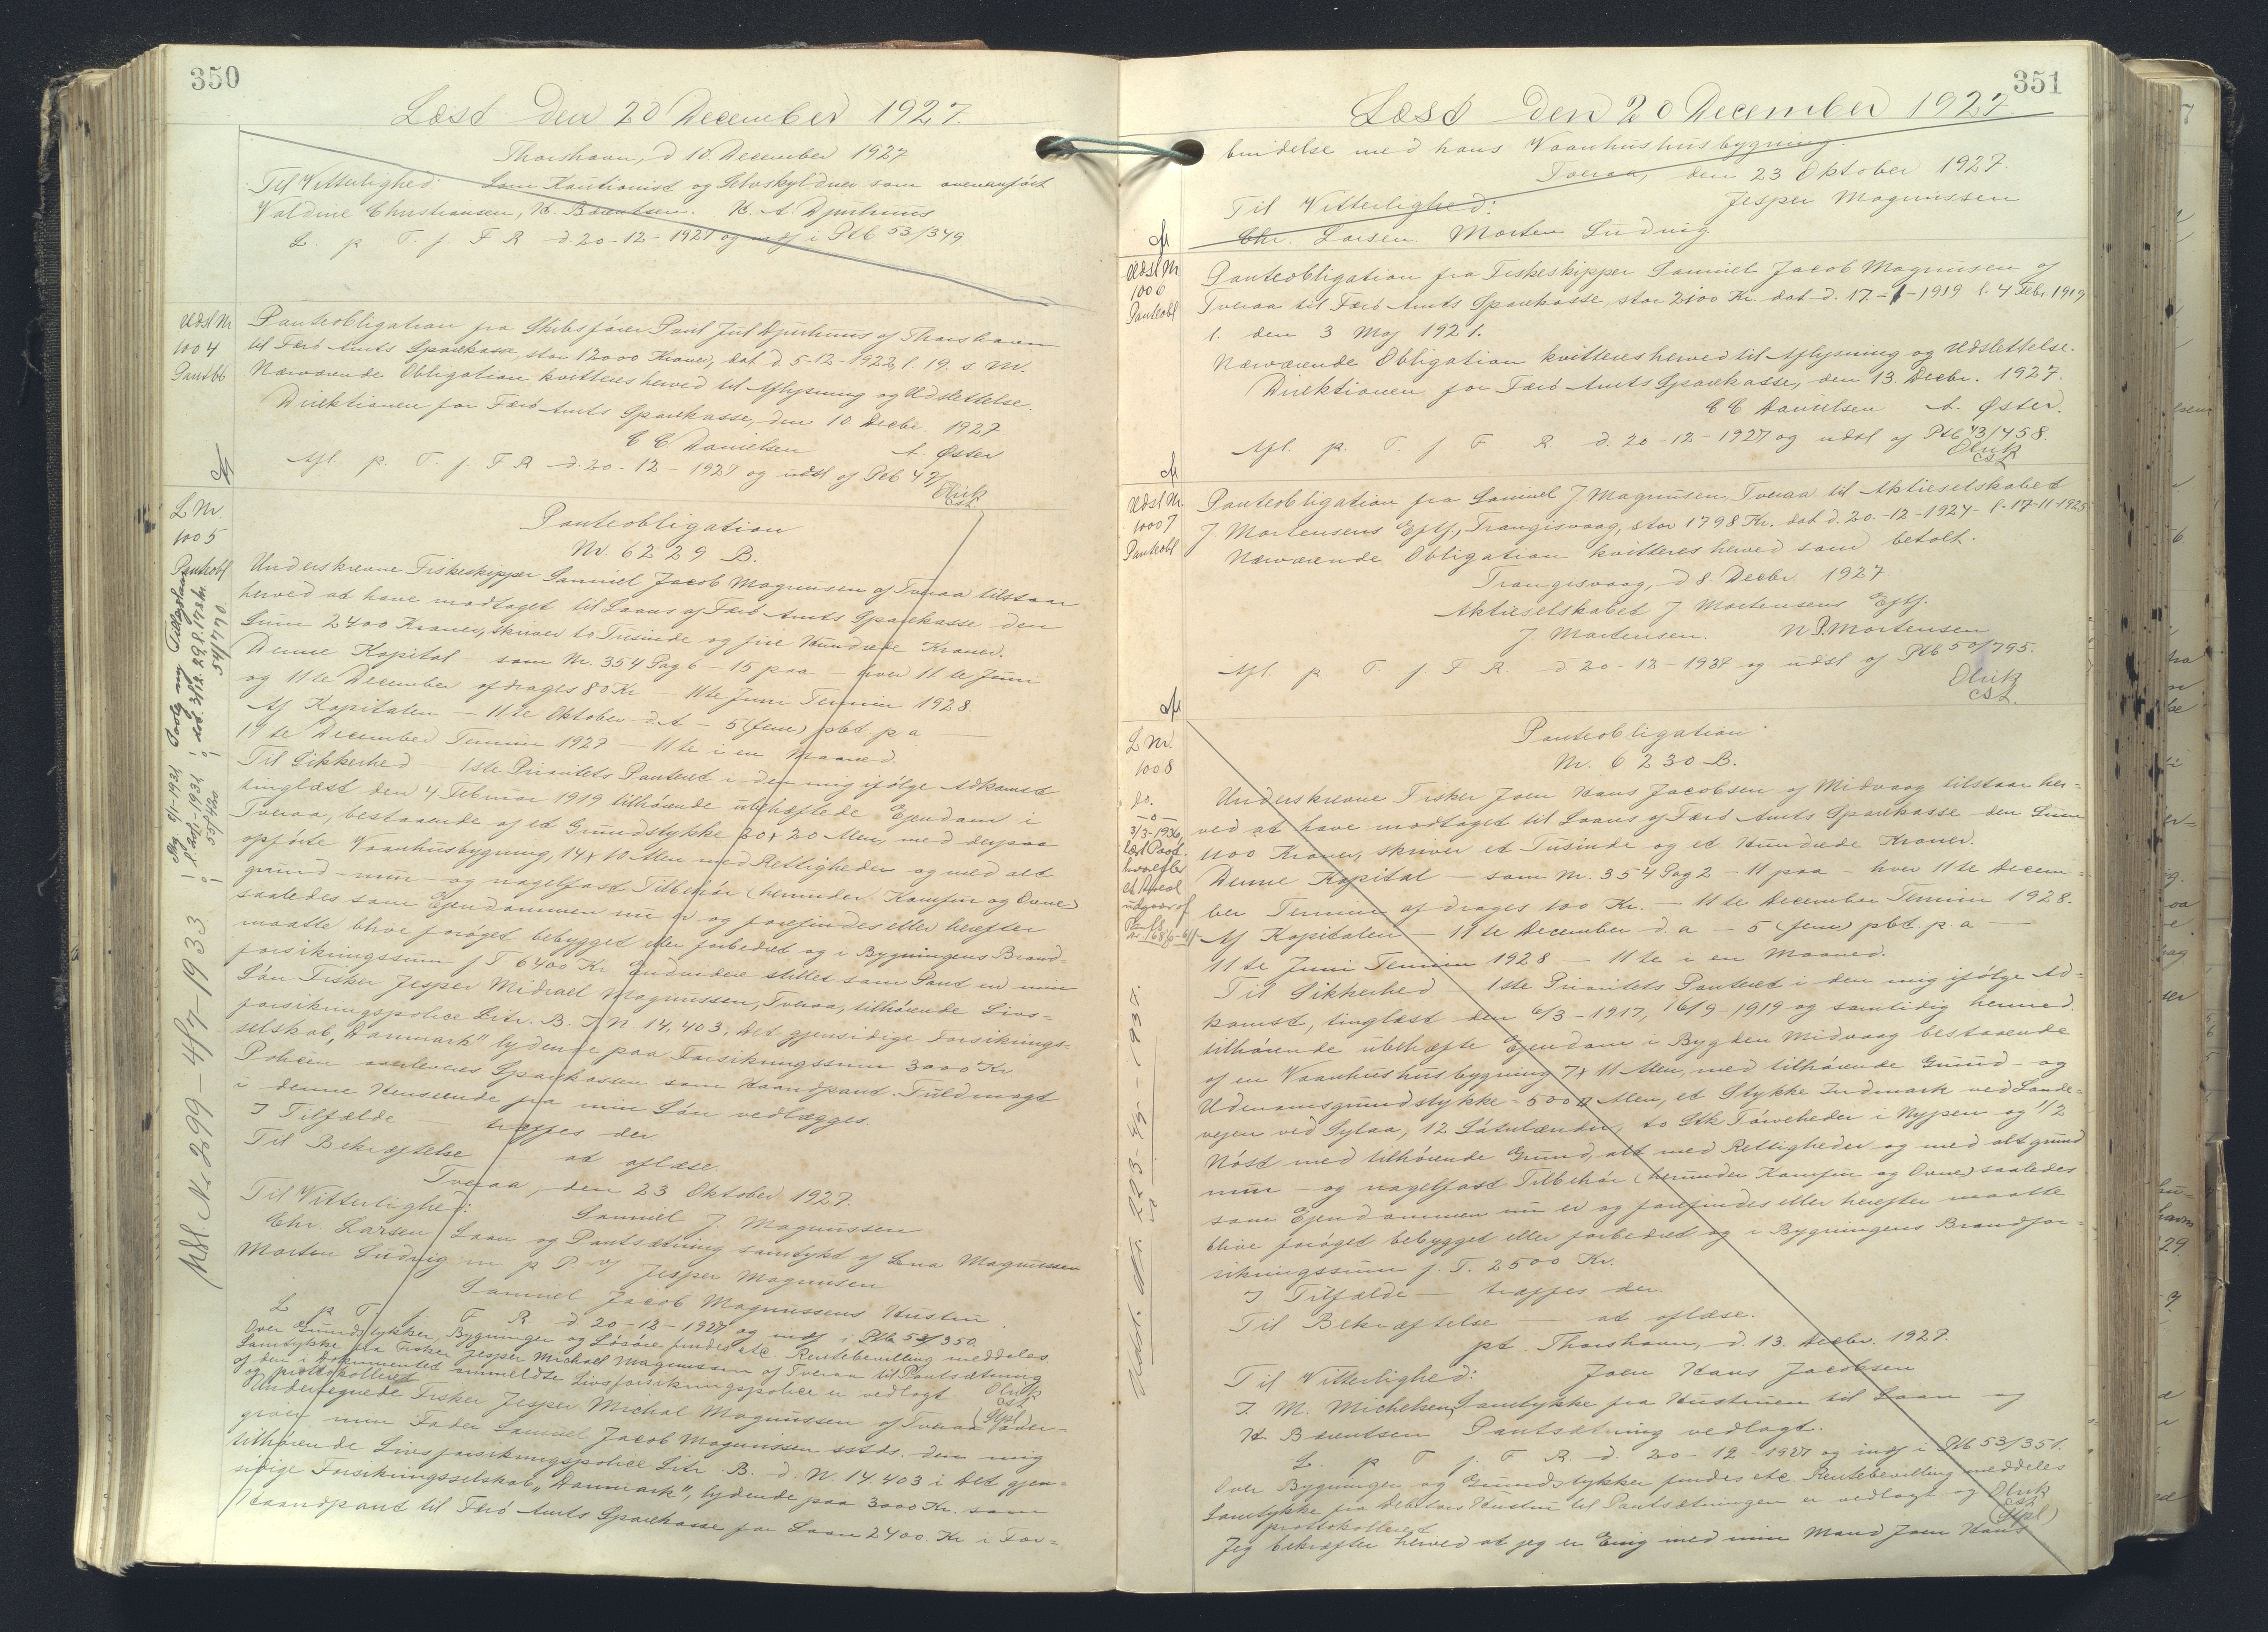 350
Læst den 20 December 1927.
Thorshavn, d 10. December 1927
Til Vitterlighed: Som Kautionist og Selvskyldner som ovenanført
Valdine Christiansen, H. Bærentsen. H. A. Djurhuus
L. p. T. f. F R d. 20-12-1927 og indf i Ptb 53/349.
Udsl Nr
1004
Pantob
Panteobligation fra Skibsfører Poul Juul Djurhuus af Thorshavn
til Færø Amts Sparekasse, stor 12000 Kroner, dat d. 5-12-1922, l. 19. s. M.
Nærværende Obligation kvitteres herved til Aflysning og Udslettelse.
Direktionen for Færø Amts Sparekasse, den 10 Decbr. 1927
C C. Danielsen A. Øster
Afl. p. T. f. F R d. 20-12-1927 og udsl af Ptb 47/
Olrik
cst.
L Nr.
1005
Panteobl
Panteobligation
Nr. 6229 B.
Underskrevne Fiskeskipper Samuel Jacob Magnussen af Tveraa tilstaar
herved at have modtaget til Laans af Færø Amts Sparekasse den
Sum 2400 Kroner, skriver to Tusinde og fire Hundrede Kroner.
Denne Kapital – som Nr. 354 Pag 6 – 15 paa – hver 11te Juni
og 11te December afdrages 80 Kr – 11te Juni Termin 1928.
Af Kapitalen – 11te Oktober d. A – 5 (fem) pct p a
11te December Termin 1927 – 11te i en Maaned.
Til Sikkerhed – 1ste Prioritets Panteret i den mig ifølge Adkomst
tinglæst den 4 Februar 1919 tilhørende ubehæftede Ejendom i
Tveraa, bestaaende af et Grundstykke 20 x 20 Alen, med derpaa
opførte Vaanhusbygning, 14 x 10 Alen med Rettigheder og med alt
grund- mur- og nagelfast Tilbehør (herunder Komfur og Ovne)
saaledes som Ejendommen nu er og forefindes eller herefter
maatte blive forøget bebygget eller forbedret og i Bygningens Brand=
forsikringssum f T 6400 Kr. Endvidere stilles som Pant en min
Søn Fisker Jesper Michael Magnussen, Tveraa, tilhørende Livs=
forsikringspolice Litr. B. d. N. 14,403, det gjensidige Forsikrings=
selskab "Danmark" lydende paa Forsikringssum 3000 Kr.
Policen overleveres Sparekassen som Haandpant. Fuldmagt
i denne Henseende fra min Søn vedlægges.
I Tilfælde – træffes der
Til Bekræftelse – at aflæse.
Tveraa, den 23 Oktober 1927.
Til Vitterlighed: Samuel J. Magnussen
Chr. Larsen Laan og Pantsætning samtykt af Lena Magnussen
Morten Ludvig m p P v/ Jesper Magnussen
Samuel Jacob Magnussens Hustru
L p T. f. F R d. 20-12-1927 og indf i Ptb 53/350.
Over Grundstykker, Bygninger og Løsøre findes etc. Rentebevilling meddeles
Samtykke fra Fisker Jesper Michael Magnussen af Tveraa til Pantsætning
af den i Dokumentet ommeldte Livsforsikringspolice er vedlagt
og protokolleret Olrik
cst
(Stpl)
Undertegnede Fisker Jesper Michal Magnussen af Tveraa
giver min Fader Samuel Jacob Magnussen sstds. den mig
tilhørende Livsforsikringspolice Litr. B. d. N. 14,403 i Det gjen=
sidige Forsikringsselskab, "Danmark", lydende paa 3000 Kr. som
Haandpant til Færø Amts Sparekasse for Laan 2400. Kr i For=
Udsl. Nr 299 – 4/7 – 1933
351
Læst den 20 December 1927.
bindelse med hans Vaanhushusbygning.
Tveraa, den 23 Oktober 1927.
Til Vitterlighed: Jesper Magnussen
Chr. Larsen Morten Ludvig
Udsl Nr
1006
Panteobl
Panteobligation fra Fiskeskipper Samuel Jacob Magnussen af
Tveraa til Færø Amts Sparekasse, stor 2100 Kr. dat d. 17-1-1919 l. 4 Febr. 1919
l. den 3 Maj 1921.
Nærværende Obligation kvitteres herved til Aflysning og Udslettelse.
Direktionen for Færø Amts Sparekasse, den 13. Decbr. 1927.
C C Danielsen A. Øster.
Afl. p. T. f F R d. 20-12-1927 og udsl af Ptb 43/458.
Olrik
cst.
Udsl Nr.
1007
Panteobl
Panteobligation fra Samuel J Magnussen, Tveraa til Aktieselskabet
J. Mortensens Eftf, Trangisvaag, stor 1798 Kr. dat d. 20-12-1924 l. 17-11-1925
Nærværende Obligation kvitteres herved som betalt.
Trangisvaag, d 8. Decbr. 1927
Aktieselskabet J Mortensens Eftf.
J Mortensen. N P. Mortensen
Afl. p T. f F R. d 20-12-1927 og udsl af Ptb 50/795.
Olrik
cst.
L Nr.
1008
do.
Panteobligation
Nr. 6230 B.
Underskrevne Fisker Joen Hans Jacobsen af Midvaag tilstaar her=
ved at have modtaget til Laans af Færø Amts Sparekasse den Sum
1100 Kroner, skriver et Tusinde og et Hundrede Kroner.
Denne Kapital – som Nr. 354 Pag 2 – 11 paa hver 11te Decem=
ber Termin afdrages 100 Kr. – 11te December Termin 1928.
Af Kapitalen – 11te December d. a – 5 (fem) pct. p. a
11te Juni Termin 1928 – 11te i en Maaned.
Til Sikkerhed – 1ste Prioritets Panteret i den mig ifølge Ad=
komst, tinglæst den 6/3-1917, 16/9-1919 og samtidig hermed.
tilhørende ubehæfte Ejendom i Bygden Midvaag bestaaende
af en Vaanhushusbygning 7 x 11 Alen, med tilhørende Grund- og
Udenomsgrundstykke = 500 □ Alen, et Stykke Indmark ved Lande=
vejen ved Sylaa, 12 Såtulænder, to Stk Tørveheder i Nypen og 1/2
Nøst med tilhørende Grund, alt med Rettigheder og med alt grund
mur- og nagelfast Tilbehør (herunder Komfur og Ovne) saaledes
som Ejendommen nu er og forefindes eller herefter maatte
blive forøget bebygget eller forbedret og i Bygningens Brandfor=
sikringssum f. T. 2500 Kr.
I Tilfælde – træffes der.
Til Bekræftelse – at aflæse.
pt. Thorshavn, d. 13. Decbr. 1927.
Til Vitterlighed: Joen Hans Jacobsen
J. M. Michelsen, Samtykke fra Hustruen til Laan og
H. Bærentsen Pantsætning vedlagt.
L. p T f. F R d. 20-12-1927 og indf i Ptb 53/351.
Over Bygninger og Grundstykker findes etc. Rentebevilling meddeles
Samtykke fra Debitors Hustru til Pantsætningen er vedlagt og
protokolleret Olrik
cst
(Stpl)
Jeg bekræfter herved at jeg er Enig med min Mand Joen Hans